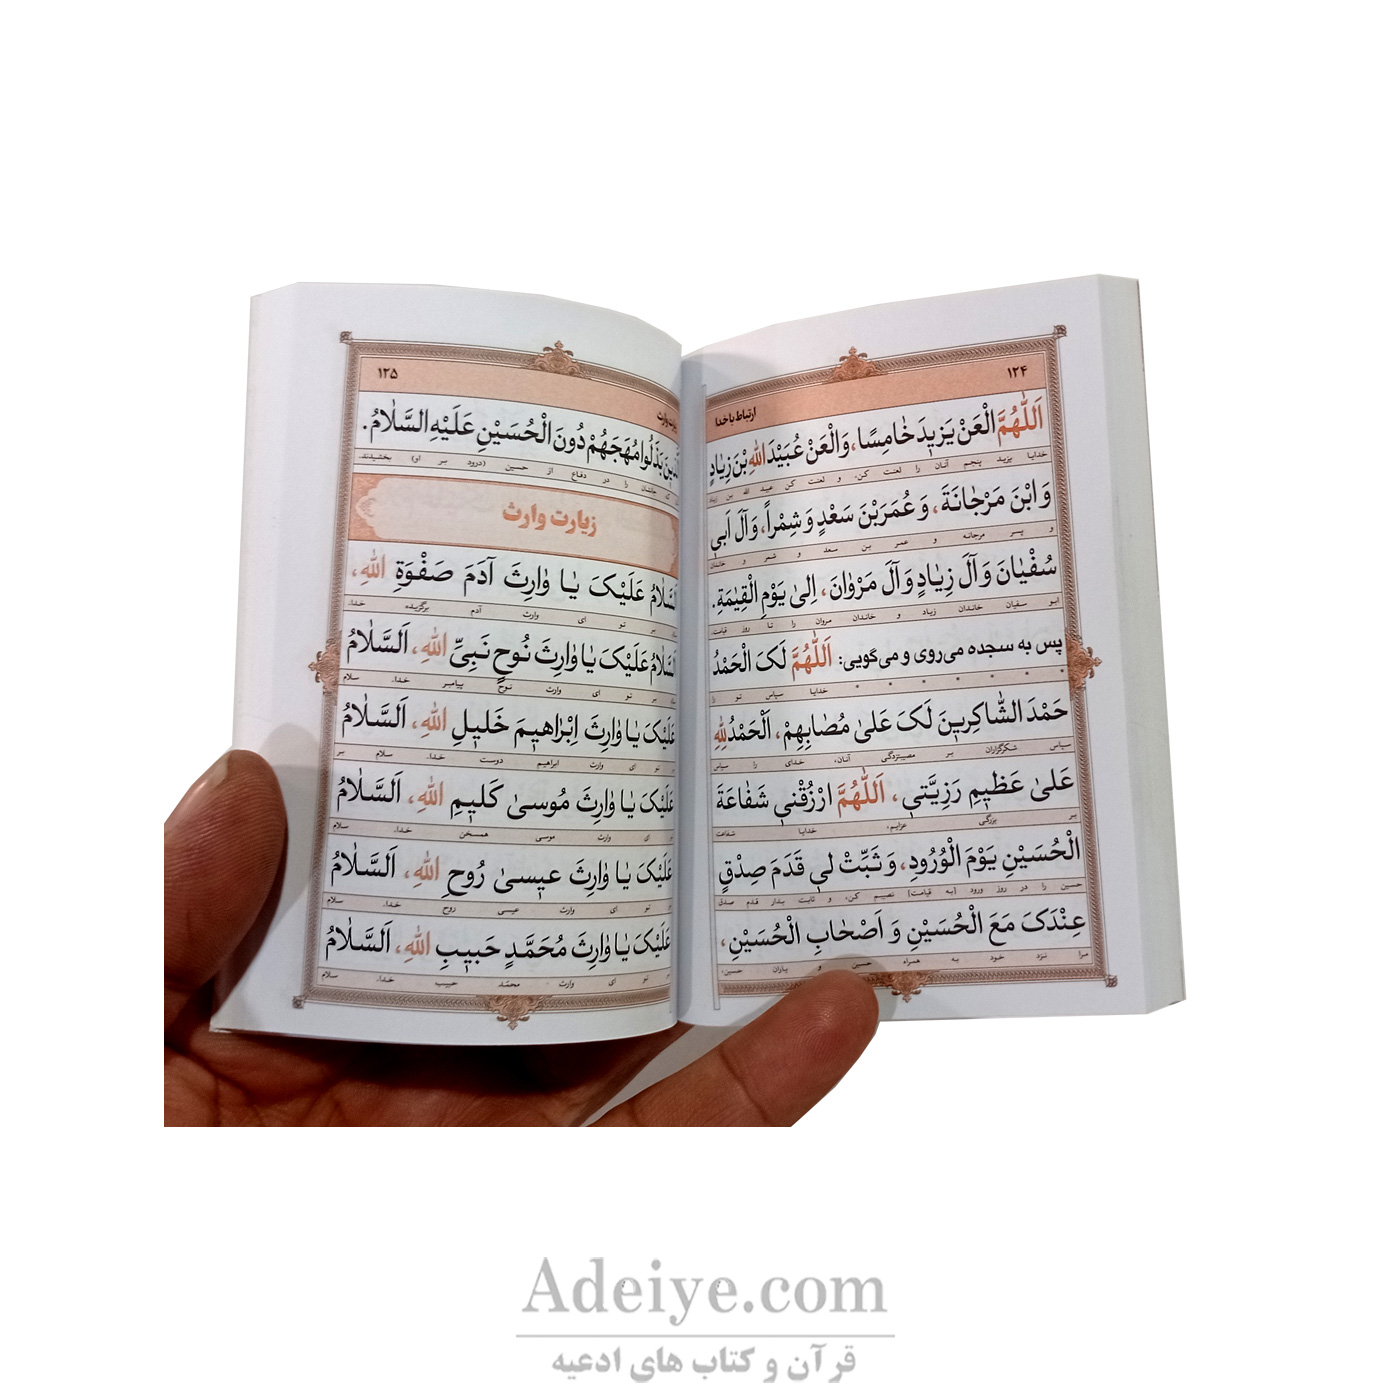 ۱۲۴
ارتباط با خدا
اَللّٰهُمَّ الْعَنْ یَزیٖدَ خٰامِسًا، وَالْعَنْ عُبَیْدَ اللّٰهِ بْنَ زِیٰادٍ
خدایا یزید پنجم آنان را لعنت کن، و لعنت کن عبید الله بن زیاد
وَ ابْنَ مَرْجٰانَةَ، وَ عُمَرَبْنَ سَعْدٍ وَ شِمْراً، وَ آلَ اَبیٖ
و پسر مرجانه و عمر بن سعد و شمر و خاندان
سُفْیٰانَ وَ آلَ زِیٰادٍ وَ آلَ مَرْوٰانَ، اِلیٰ یَوْمِ الْقِیٰمَةِ.
ابو سفیان خاندان زیاد و خاندان مروان را تا روز قیامت
پس به سجده می‌روی و می‌گویی: اَللّٰهُمَّ لَکَ الْحَمْدُ
خدایا سپاس تو را
حَمْدَ الشّٰاکِریٖنَ لَکَ عَلیٰ مُصٰابِهِمْ، اَلْحَمْدُ لِلّٰهِ
سپاس شکرگزاران بر مصیبتزدگی آنان، خدای را سپاس
عَلیٰ عَظیٖمِ رَزِیَّتیٖ، اَللّٰهُمَّ ارْزُقْنیٖ شَفٰاعَةَ
بر بزرگی عزایم، خدایا شفاعت
الْحُسَیْنِ یَوْمَ الْوُرُودِ، وَ ثَبِّتْ لیٖ قَدَمَ صِدْقٍ
حسین را در روز ورود [به قیامت] نصیبم کن، و ثابت بدار قدم صدق
عِنْدَکَ مَعَ الْحُسَیْنِ وَ اَصْحٰابِ الْحُسَیْنِ،
مرا نزد خود به همراه حسین و یاران حسین،
۱۲۵
بَذَلُوا مُهَجَهُمْ دُونَ الْحُسَیْنِ عَلَیْهِ السَّلٰامُ.
جانشان را در دفاع از حسین (درود بر او) بخشیدند.
زیارت وارث
اَلسَّلٰامُ عَلَیْکَ یٰا وٰارِثَ آدَمَ صَفْوَةِ اللّٰهِ،
بر تو ای وارث آدم برگزیده خدا.
اَلسَّلٰامُ عَلَیْکَ یٰا وٰارِثَ نُوحٍ نَبِیِّ اللّٰهِ، اَلسَّلٰامُ
بر تو ای وارث نوح پیامبر خدا. سلام
عَلَیْکَ یٰا وٰارِثَ اِبْرٰاهیٖمَ خَلیٖلِ اللّٰهِ، اَلسَّلٰامُ
بر تو ای وارث ابراهیم دوست خدا. سلام بر
عَلَیْکَ یٰا وٰارِثَ مُوسیٰ کَلیٖمِ اللّٰهِ، اَلسَّلٰامُ
ای وارث موسی همسخن خدا. سلام
عَلَیْکَ یٰا وٰارِثَ عیٖسیٰ رُوحِ اللّٰهِ، اَلسَّلٰامُ
بر تو ای وارث عیسی روح خدا. سلام
عَلَیْکَ یٰا وٰارِثَ مُحَمَّدٍ حَبیٖبِ اللّٰهِ، اَلسَّلٰامُ
بر تو ای وارث محمّد حبیب خدا. سلام
Adeiye.com
قرآن و کتاب های ادعیه